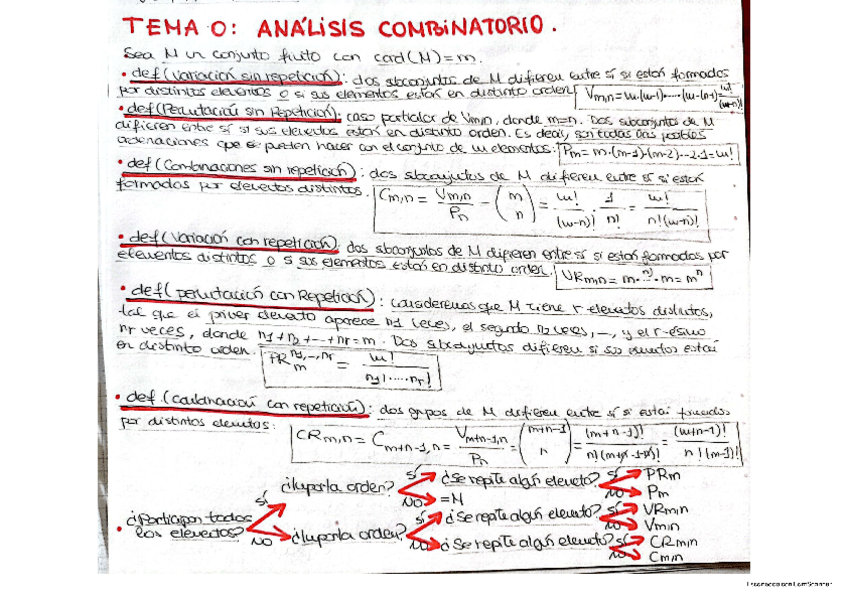 TEMA 0: ANÁLISIS COMBINATORIO.
Sea M un conjunto finito con card(M)=m.
• def (Variación sin repetición): dos subconjuntos de M difieren entre sí si están formados
por distintos elementos o si sus elementos están en distinto orden. V_{m,n} = m·(m-1)·....·(m-(n-1)) = m!/(m-n)!
• def (Permutación sin Repetición): caso particular de V_{m,n}, donde m=n. Dos subconjuntos de M
difieren entre sí si sus elementos están en distinto orden. Es decir, son todas las posibles
ordenaciones que se pueden hacer con el conjunto de m elementos. P_m = m·(m-1)·(m-2)...2·1 = m!
• def (Combinaciones sin repetición): dos subconjuntos de M difieren entre sí si están
formados por elementos distintos. C_{m,n} = V_{m,n}/P_n = (m n) = m!/(m-n)! · 1/n! = m!/n!(m-n)!
• def (Variación con repetición): dos subconjuntos de M difieren entre sí si están formados por
elementos distintos o si sus elementos están en distinto orden. VR_{m,n} = m· n) ·m = m^n
• def (permutación con Repetición): consideremos que M tiene r elementos distintos,
tal que el primer elemento aparece n1 veces, el segundo n2 veces, ..., y el r-ésimo
nr veces, donde n1+n2+...+nr=m. Dos subconjuntos difieren si sus elementos están
en distinto orden. PR_m^{n1,...,nr} = m!/n1!·....·nr!
• def (combinación con repetición): dos grupos de M difieren entre sí si están formados
por distintos elementos: CR_{m,n} = C_{m+n-1,n} = V_{m+n-1,n}/P_n = (m+n-1 n) = (m+n-1)!/n!(m+n-1-n)! = (m+n-1)!/n!(m-1)!
• ¿Participan todos los elementos?
SÍ ¿Importa orden?
SÍ ¿Se repite algún elemento?
SÍ PRm
NO Pm
NO =M
NO ¿Importa orden?
SÍ ¿Se repite algún elemento?
SÍ VRm,n
NO Vm,n
NO ¿Se repite algún elemento?
SÍ CRm,n
NO Cm,n